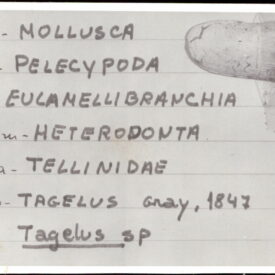 - MOLLUSCA
- PELECYPODA
EULAMELLIBRANCHIA
m - HETERODONTA
a - TELLINIDAE
- TAGELUS Gray, 1847
Tagelus sp